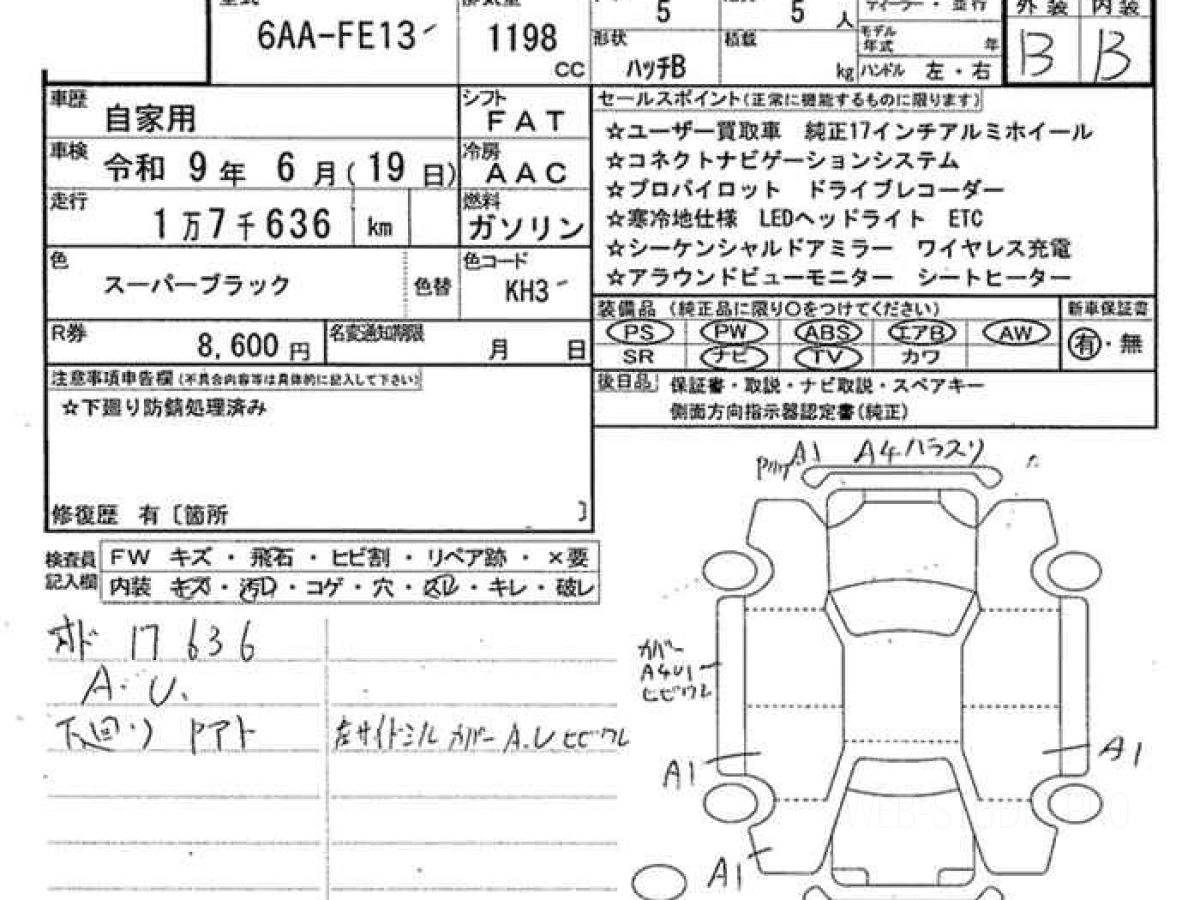 型式 排気量 5 5 人 ディーラー・並行 外装 内装
6AA-FE13 1198 cc
形状 ハッチB 積載 kg モデル年式 年 B B
ハンドル 左・右
車歴 自家用 シフト FAT
車検 令和 9年 6月(19日) 冷房 AAC
走行 1万7千636 km 燃料 ガソリン
色 スーパーブラック 色替 色コード KH3
R券 8,600円 名変通知期限 月 日
注意事項申告欄(不具合内容等は具体的に記入して下さい)
☆下廻り防錆処理済み
修復歴 有〔箇所 〕
セールスポイント(正常に機能するものに限ります)
☆ユーザー買取車 純正17インチアルミホイール
☆コネクトナビゲーションシステム
☆プロパイロット ドライブレコーダー
☆寒冷地仕様 LEDヘッドライト ETC
☆シーケンシャルドアミラー ワイヤレス充電
☆アラウンドビューモニター シートヒーター
装備品 (純正品に限り〇をつけてください) 新車保証書
PS PW ABS エアB AW 有・無
SR ナビ TV カワ
後日品 保証書・取説・ナビ取説・スペアキー
側面方向指示器認定書(純正)
検査員記入欄 FW キズ・飛石・ヒビ割・リペア跡・×要
内装 キズ・汚れ・コゲ・穴・スレ・キレ・破レ
オド 17636
A・U.
下回り Pアト 左サイドミルカバーA.Uヒビワレ
A1 A4ハラスリ
カバー
A4U1
ヒビワレ
A1 A1
A1
WEB-ST